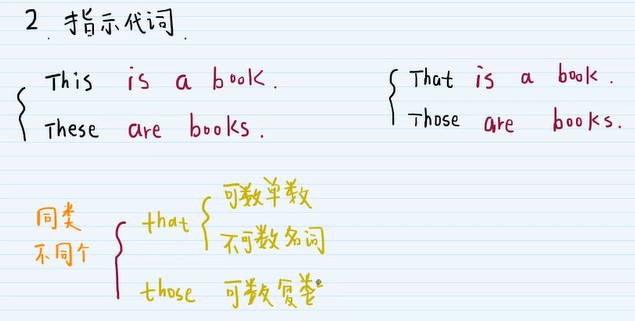 2. 指示代词.
This is a book.
These are books.
That is a book.
Those are books.
同类
不同个
that
可数单数
不可数名词
those 可数复数